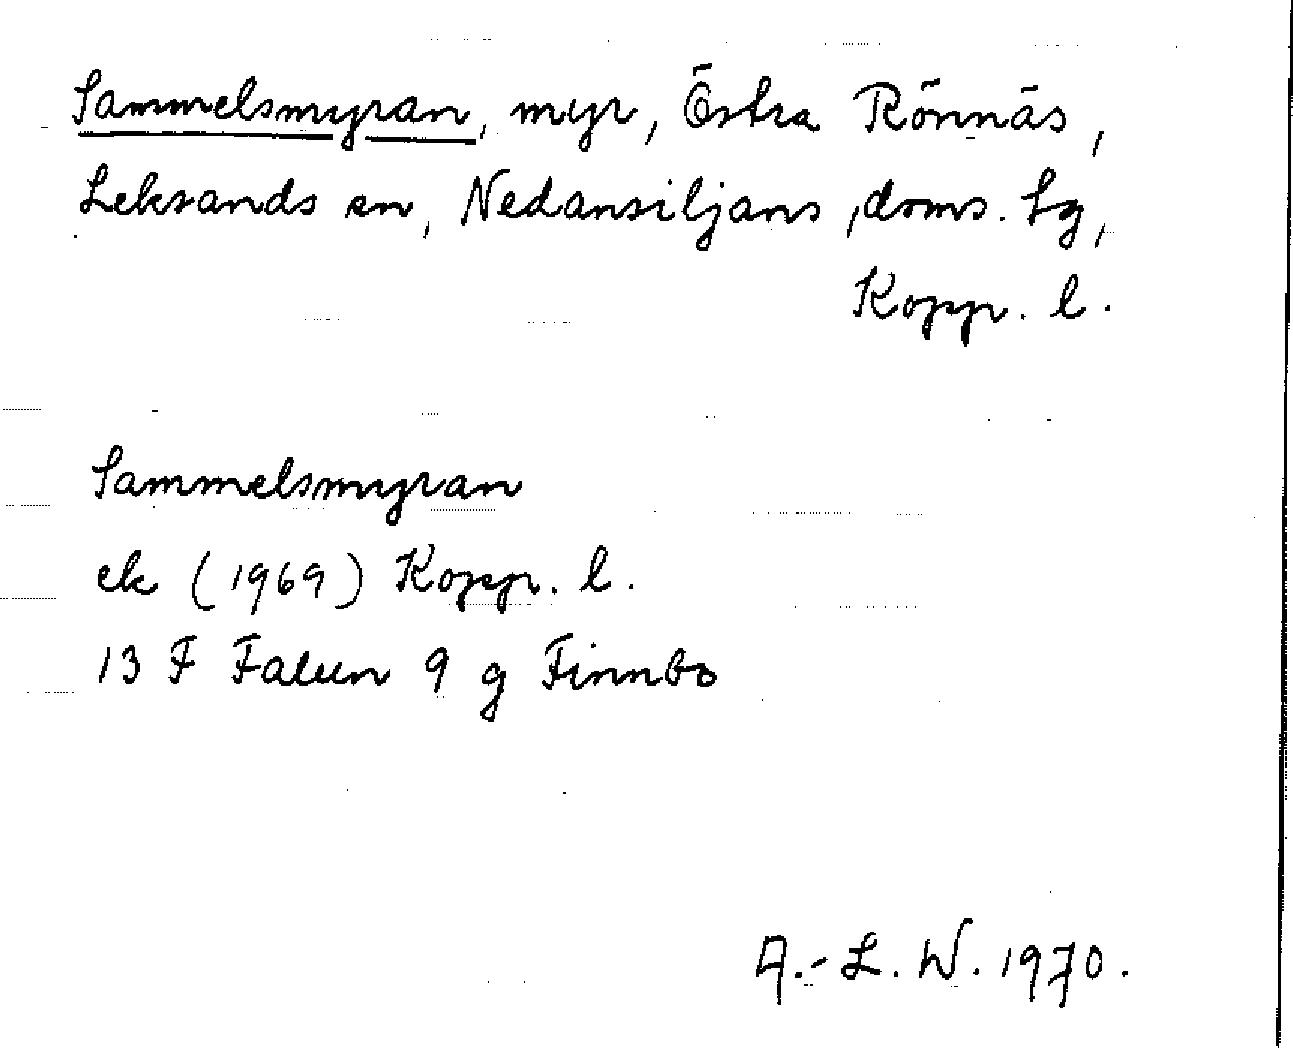 Sammelsmyran, myr, Östra Rönnäs,
Leksands sn, Nedansiljans doms. tg,
Kopp. l.
Sammelsmyran
ek (1969) Kopp. l.
13 F Falun 9 g Finnbo
A.-L. W. 1970.